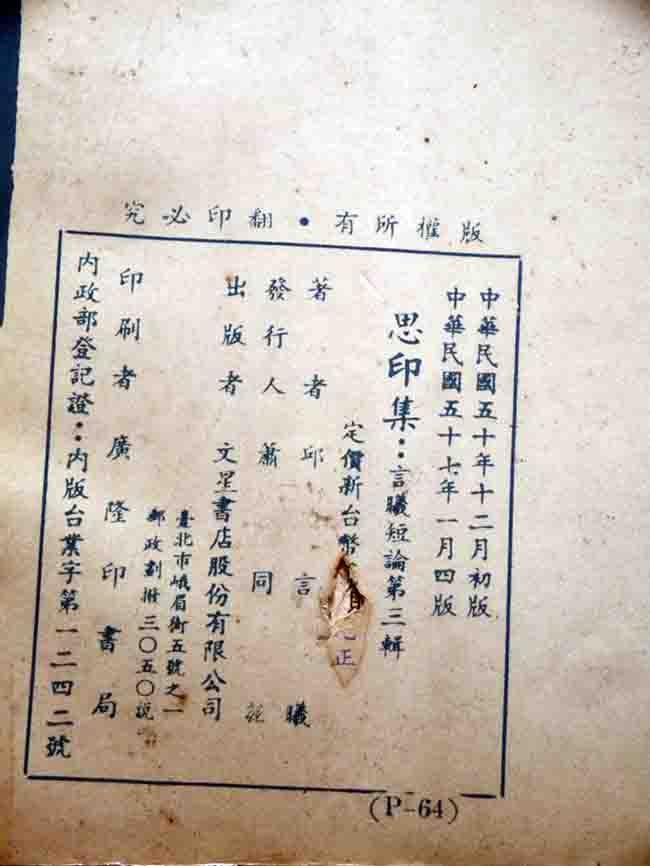 版權所有・翻印必究
中華民國五十年十二月初版
中華民國五十七年一月四版
思印集：言曦短論第三輯
定價新台幣 正
著者 邱言曦
發行人 蕭同
出版者 文星書店股份有限公司
臺北市峨眉街五號之一
郵政劃撥三〇五〇號
印刷者 廣隆印書局
內政部登記證：內版台業字第一二四二號
(P-64)